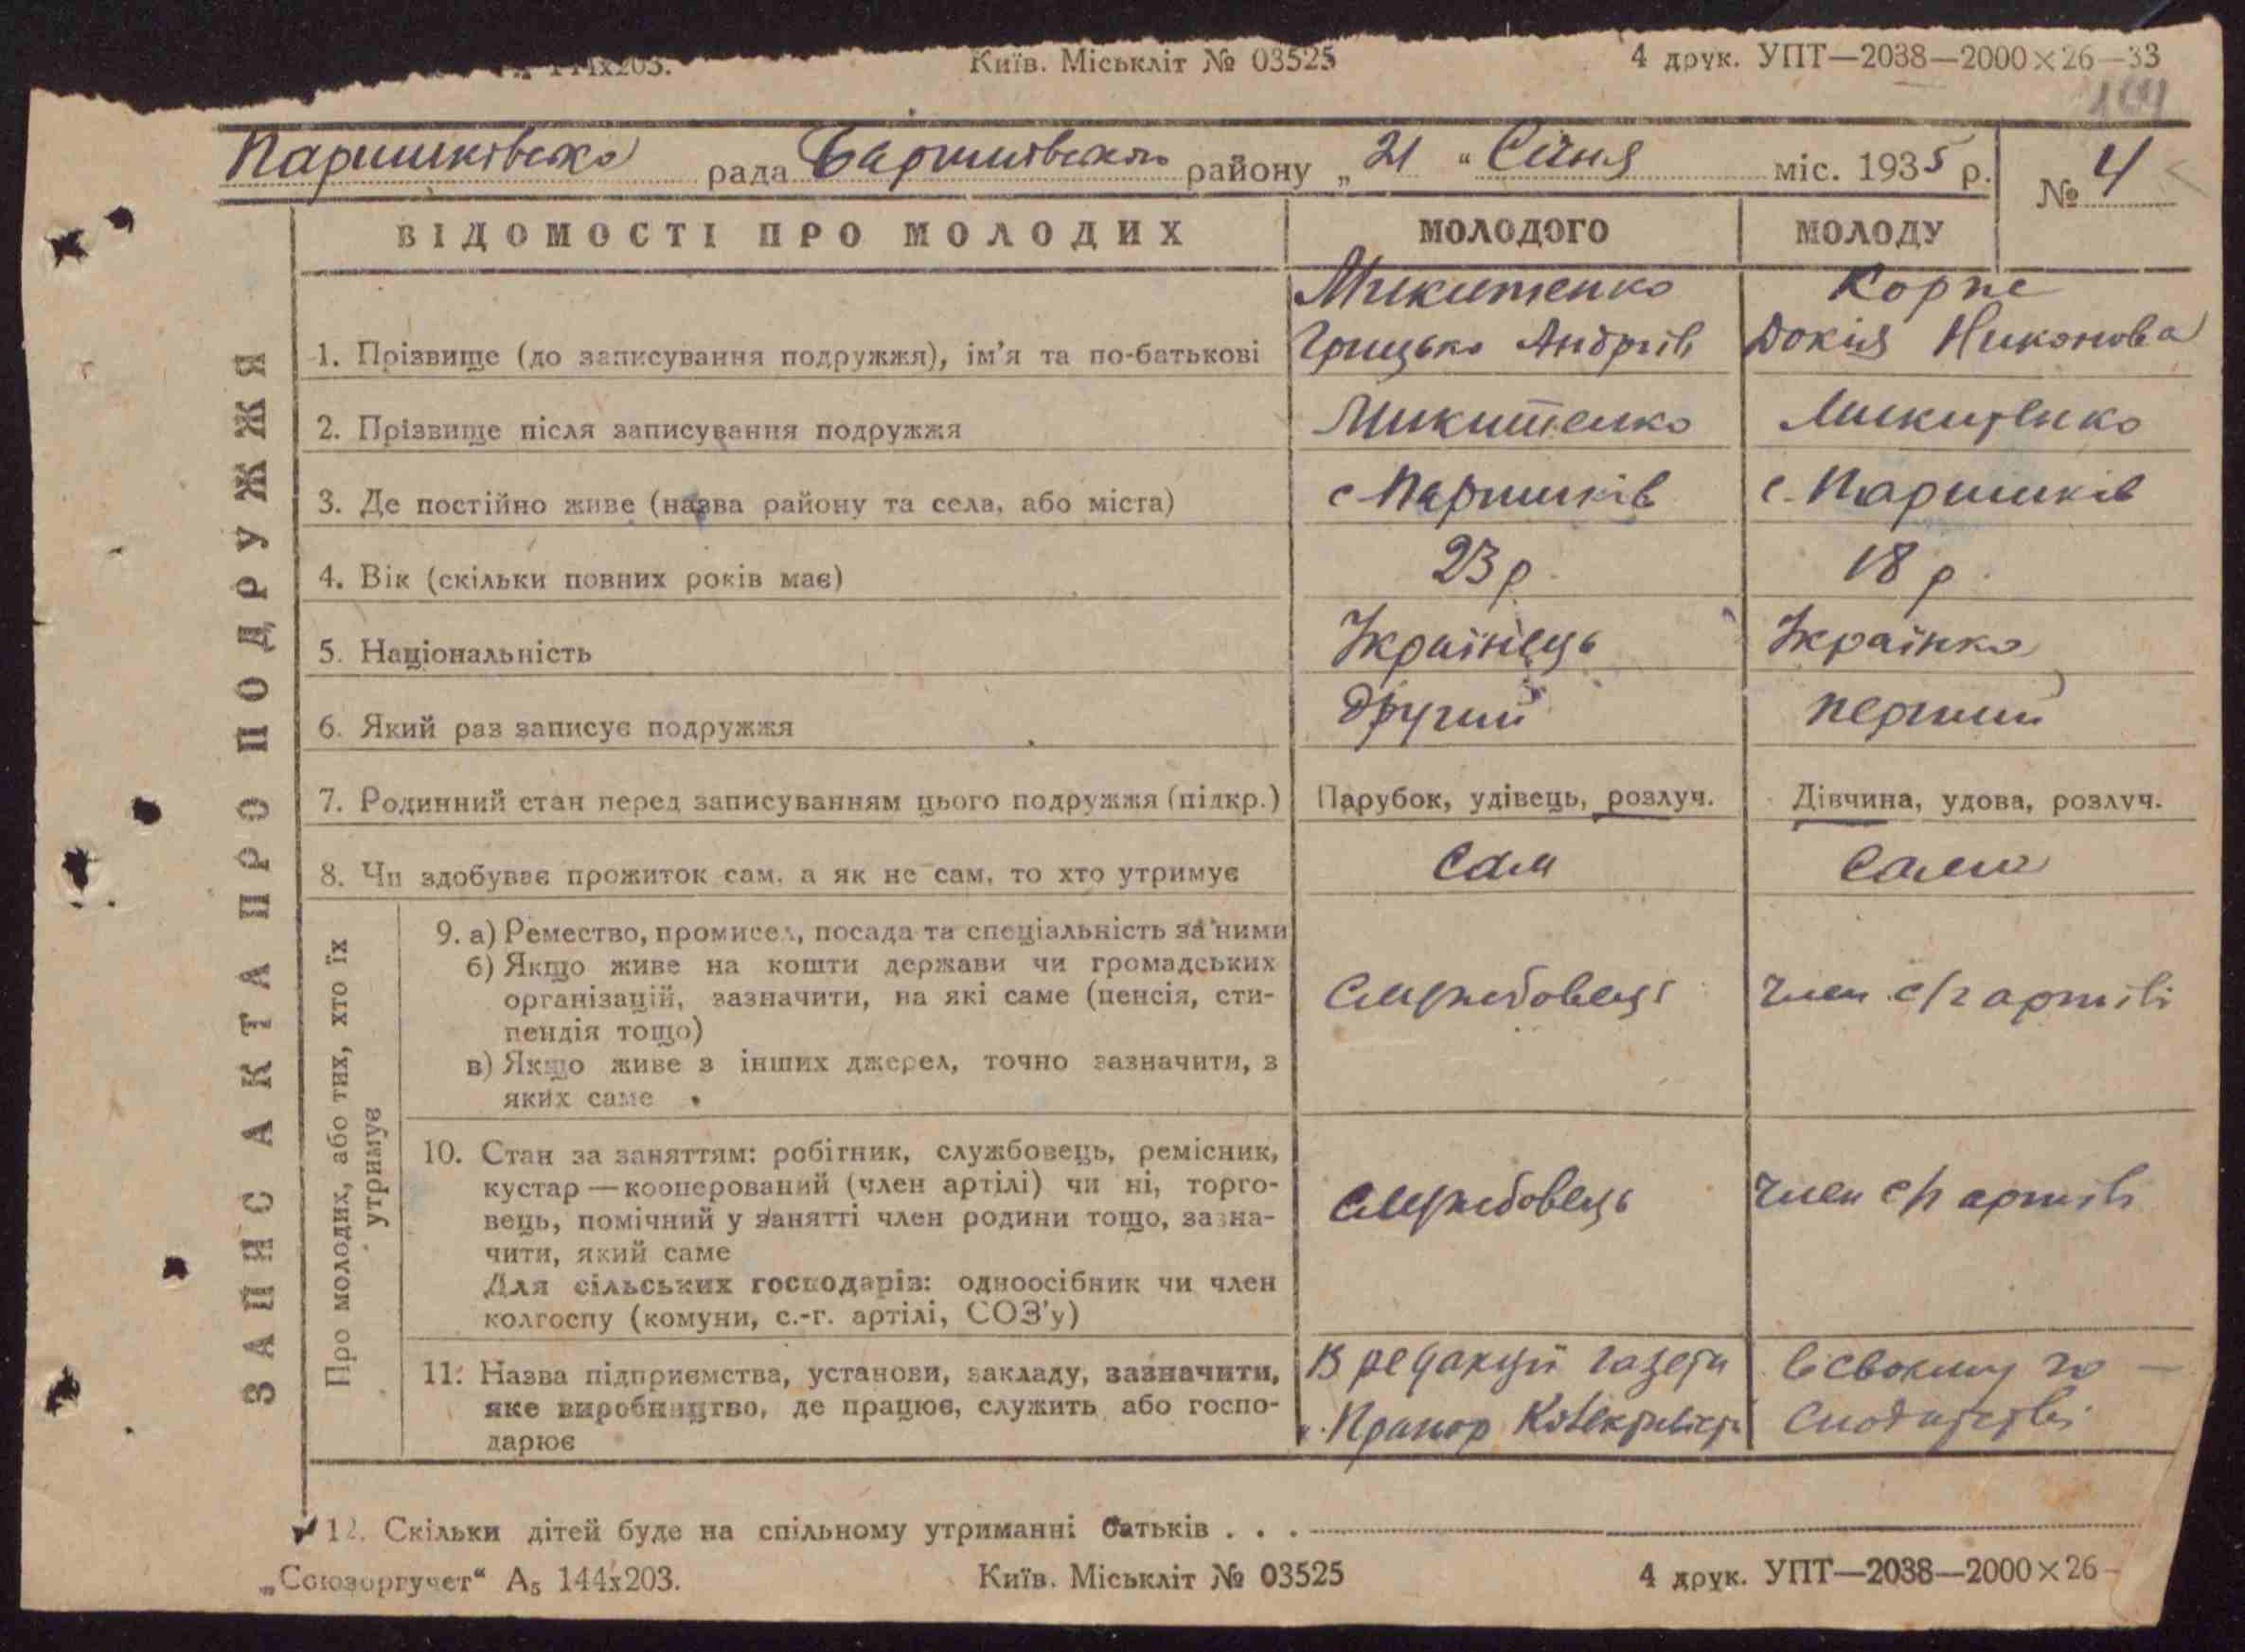 144х203. Київ. Міськліт № 03525 4 друк. УПТ—2038—2000×26—33
Паришківська рада Баришівського району „ 21 “ Січня міс. 1935 р. № 4
ВІДОМОСТІ ПРО МОЛОДИХ МОЛОДОГО МОЛОДУ
Микитенко Корпе
1. Прізвище (до записування подружжя), ім’я та по-батькові Грицько Андріїв Докія Никонова
2. Прізвище після записування подружжя Микитенко Микитенко
3. Де постійно живе (назва району та села, або міста) с Паришків с. Паришків
4. Вік (скільки повних років має) 23 р. 18 р.
5. Національність Українець Українка
6. Який раз записує подружжя другий перший
7. Родинний стан перед записуванням цього подружжя (підкр.) Парубок, удівець, розлуч. Дівчина, удова, розлуч.
8. Чи здобуває прожиток сам, а як не сам, то хто утримує Сам Сама
ЗАПИС АКТА ПРО ПОДРУЖЖЯ
Про молодих, або тих, хто їх
утримує
9. а) Ремество, промисел, посада та спеціальність за ними
б) Якщо живе на кошти держави чи громадських
організацій, зазначити, на які саме (пенсія, сти- Службовець член с/г артілі
пендія тощо)
в) Якщо живе з інших джерел, точно зазначити, з
яких саме
10. Стан за заняттям: робітник, службовець, ремісник,
кустар — кооперований (член артілі) чи ні, торго- службовець член с/г артілі
вець, помічний у занятті член родини тощо, зазна-
чити, який саме
Для сільських господарів: одноосібник чи член
колгоспу (комуни, с.-г. артілі, СОЗ’у)
11. Назва підприємства, установи, закладу, зазначити, В редакції газети в своєму го-
яке виробництво, де працює, служить або госпо- Прапор Колективіст сподарстві
дарює
12. Скільки дітей буде на спільному утриманні батьків . . .
„Союзоргучет“ А5 144х203. Київ. Міськліт № 03525 4 друк. УПТ—2038—2000×26—